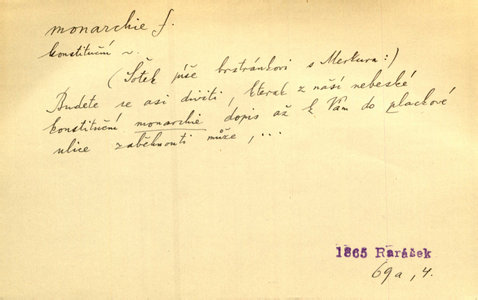 monarchie f.
konstituční ~.
(Šotek píše bratránkovi s Merkura:)
Budete se asi diviti, kterak z naší nebeské
konstituční monarchie dopis až k Vám do plackové
ulice zaběhnouti může, ...
1865 Rarášek
69a, 4.